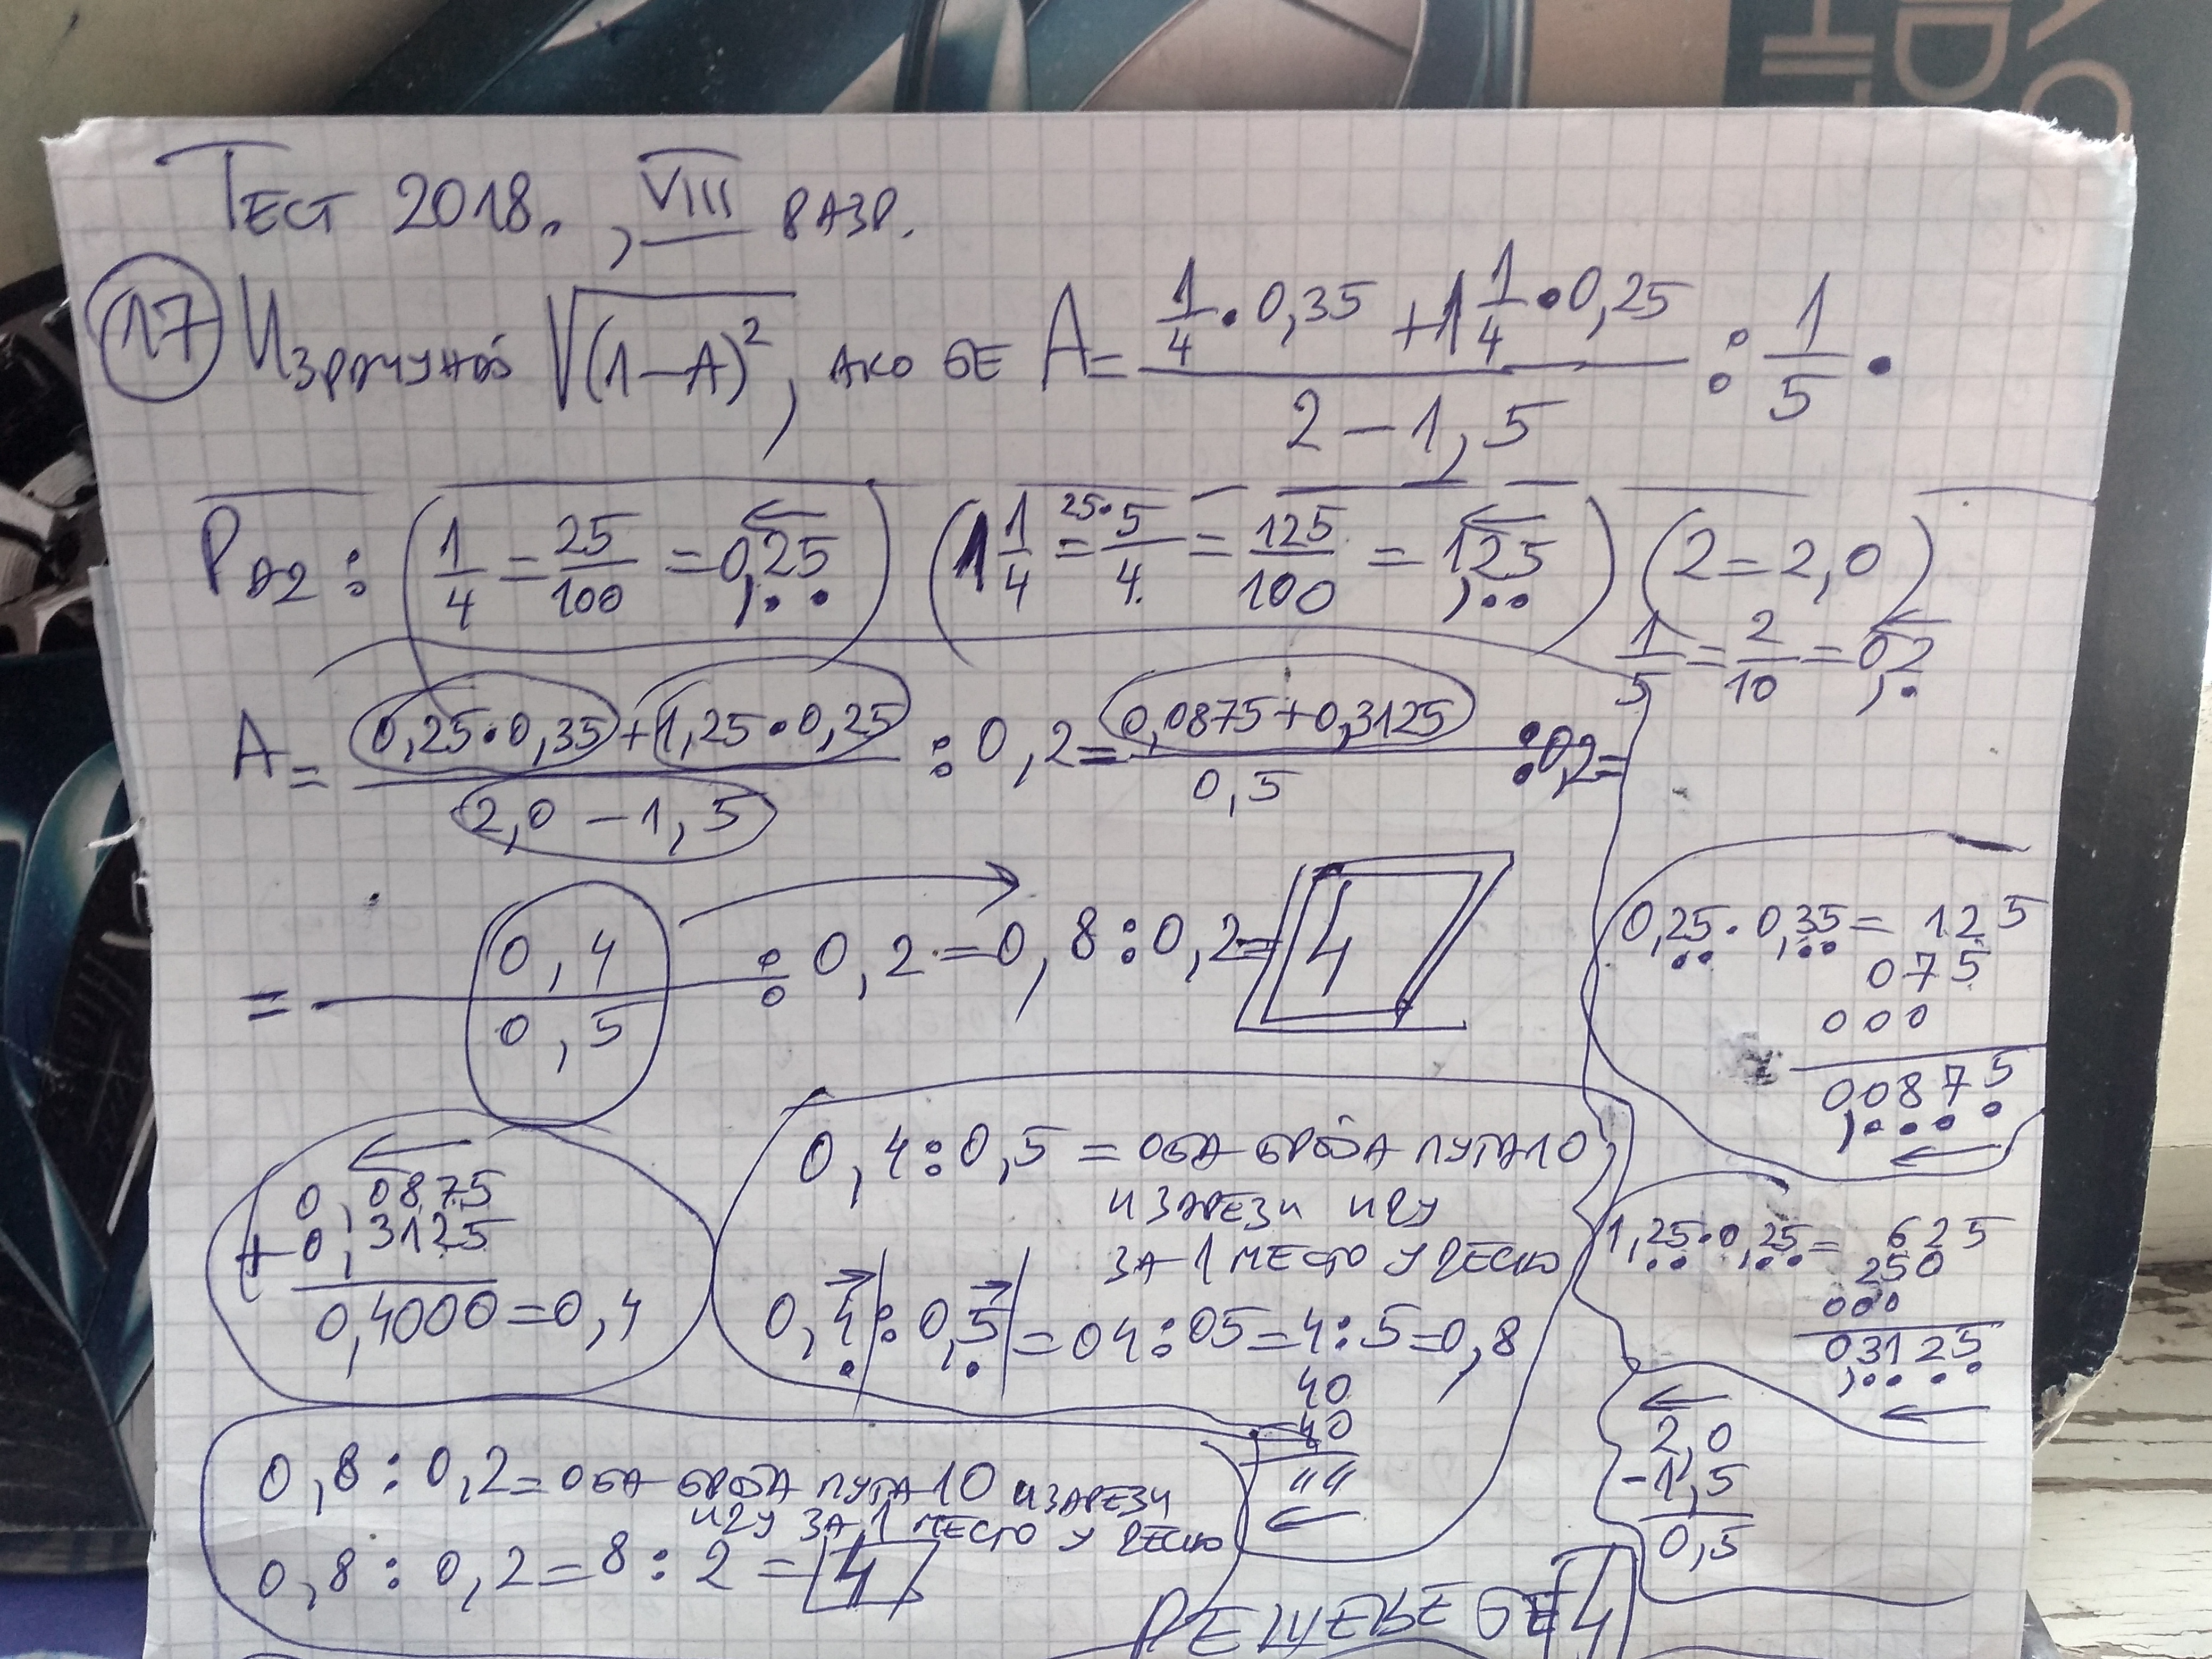 Тест 2018., VIII разр.
17 Израчунај √(1-A)², ако је A = (1/4 · 0,35 + 1 1/4 · 0,25) / (2 - 1,5) : 1/5 .
Рад: (1/4 = 25/100 = 0,25) (1 1/4 = 25· 5/4 = 125/100 = 1,25) (2 = 2,0)
1/5 = 2/10 = 0,2
A = (0,25 · 0,35 + 1,25 · 0,25) / (2,0 - 1,5) : 0,2 = (0,0875 + 0,3125) / 0,5 : 0,2 =
= 0,4 / 0,5 : 0,2 = 0,8 : 0,2 = 4
0,25 · 0,35 = 125
075
000
00875
1,25 · 0,25 = 625
250
000
0,3125
2,0
- 1,5
0,5
0,0875
+ 0,3125
0,4000 = 0,4
0,4 : 0,5 = оба броја пута 10
и зарези иду
за 1 место у десно
0,4 : 0,5 = 04 : 05 = 4 : 5 = 0,8
40
40
""
0,8 : 0,2 = оба броја пута 10 и зарези
иду за 1 место у десно
0,8 : 0,2 = 8 : 2 = 4
Решење је 4